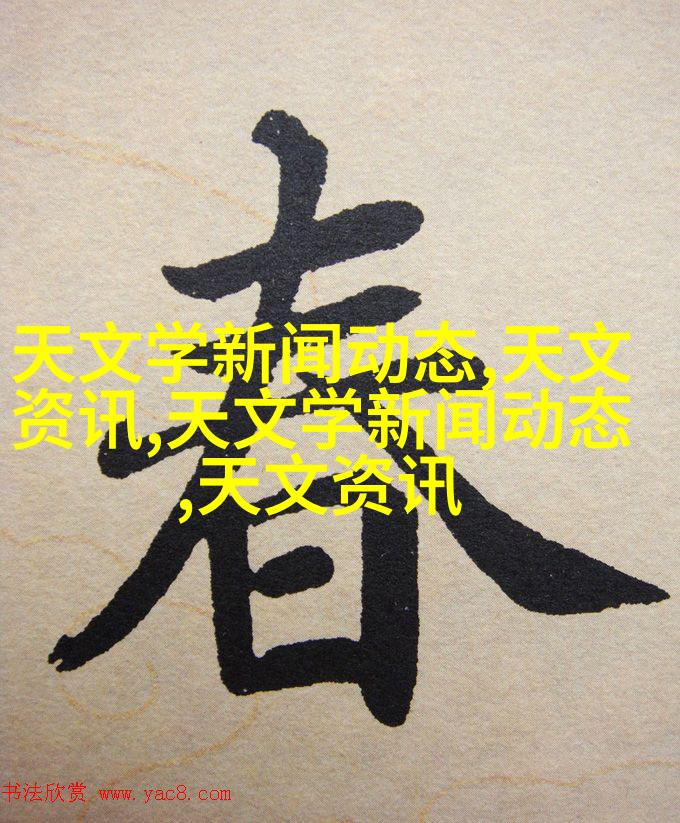 春
天文学新闻动态,天文
资讯,天文学新闻动态
,天文资讯
书法欣赏 www.yac8.com